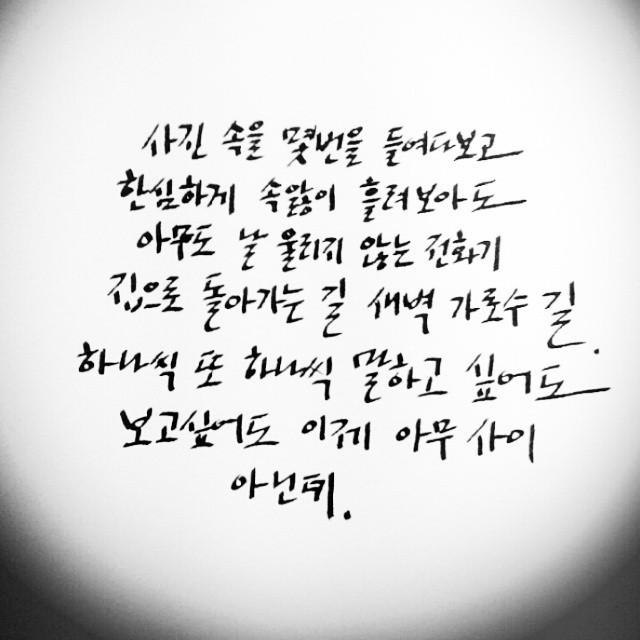 사진 속을 몇번을 들여다보고
한심하게 속앓이 흘려보아도
아무도 날 울리지 않는 전화기
집으로 돌아가는 길 새벽 가로수 길.
하나씩 또 하나씩 말하고 싶어도
보고싶어도 이제 아무 사이
아닌데.